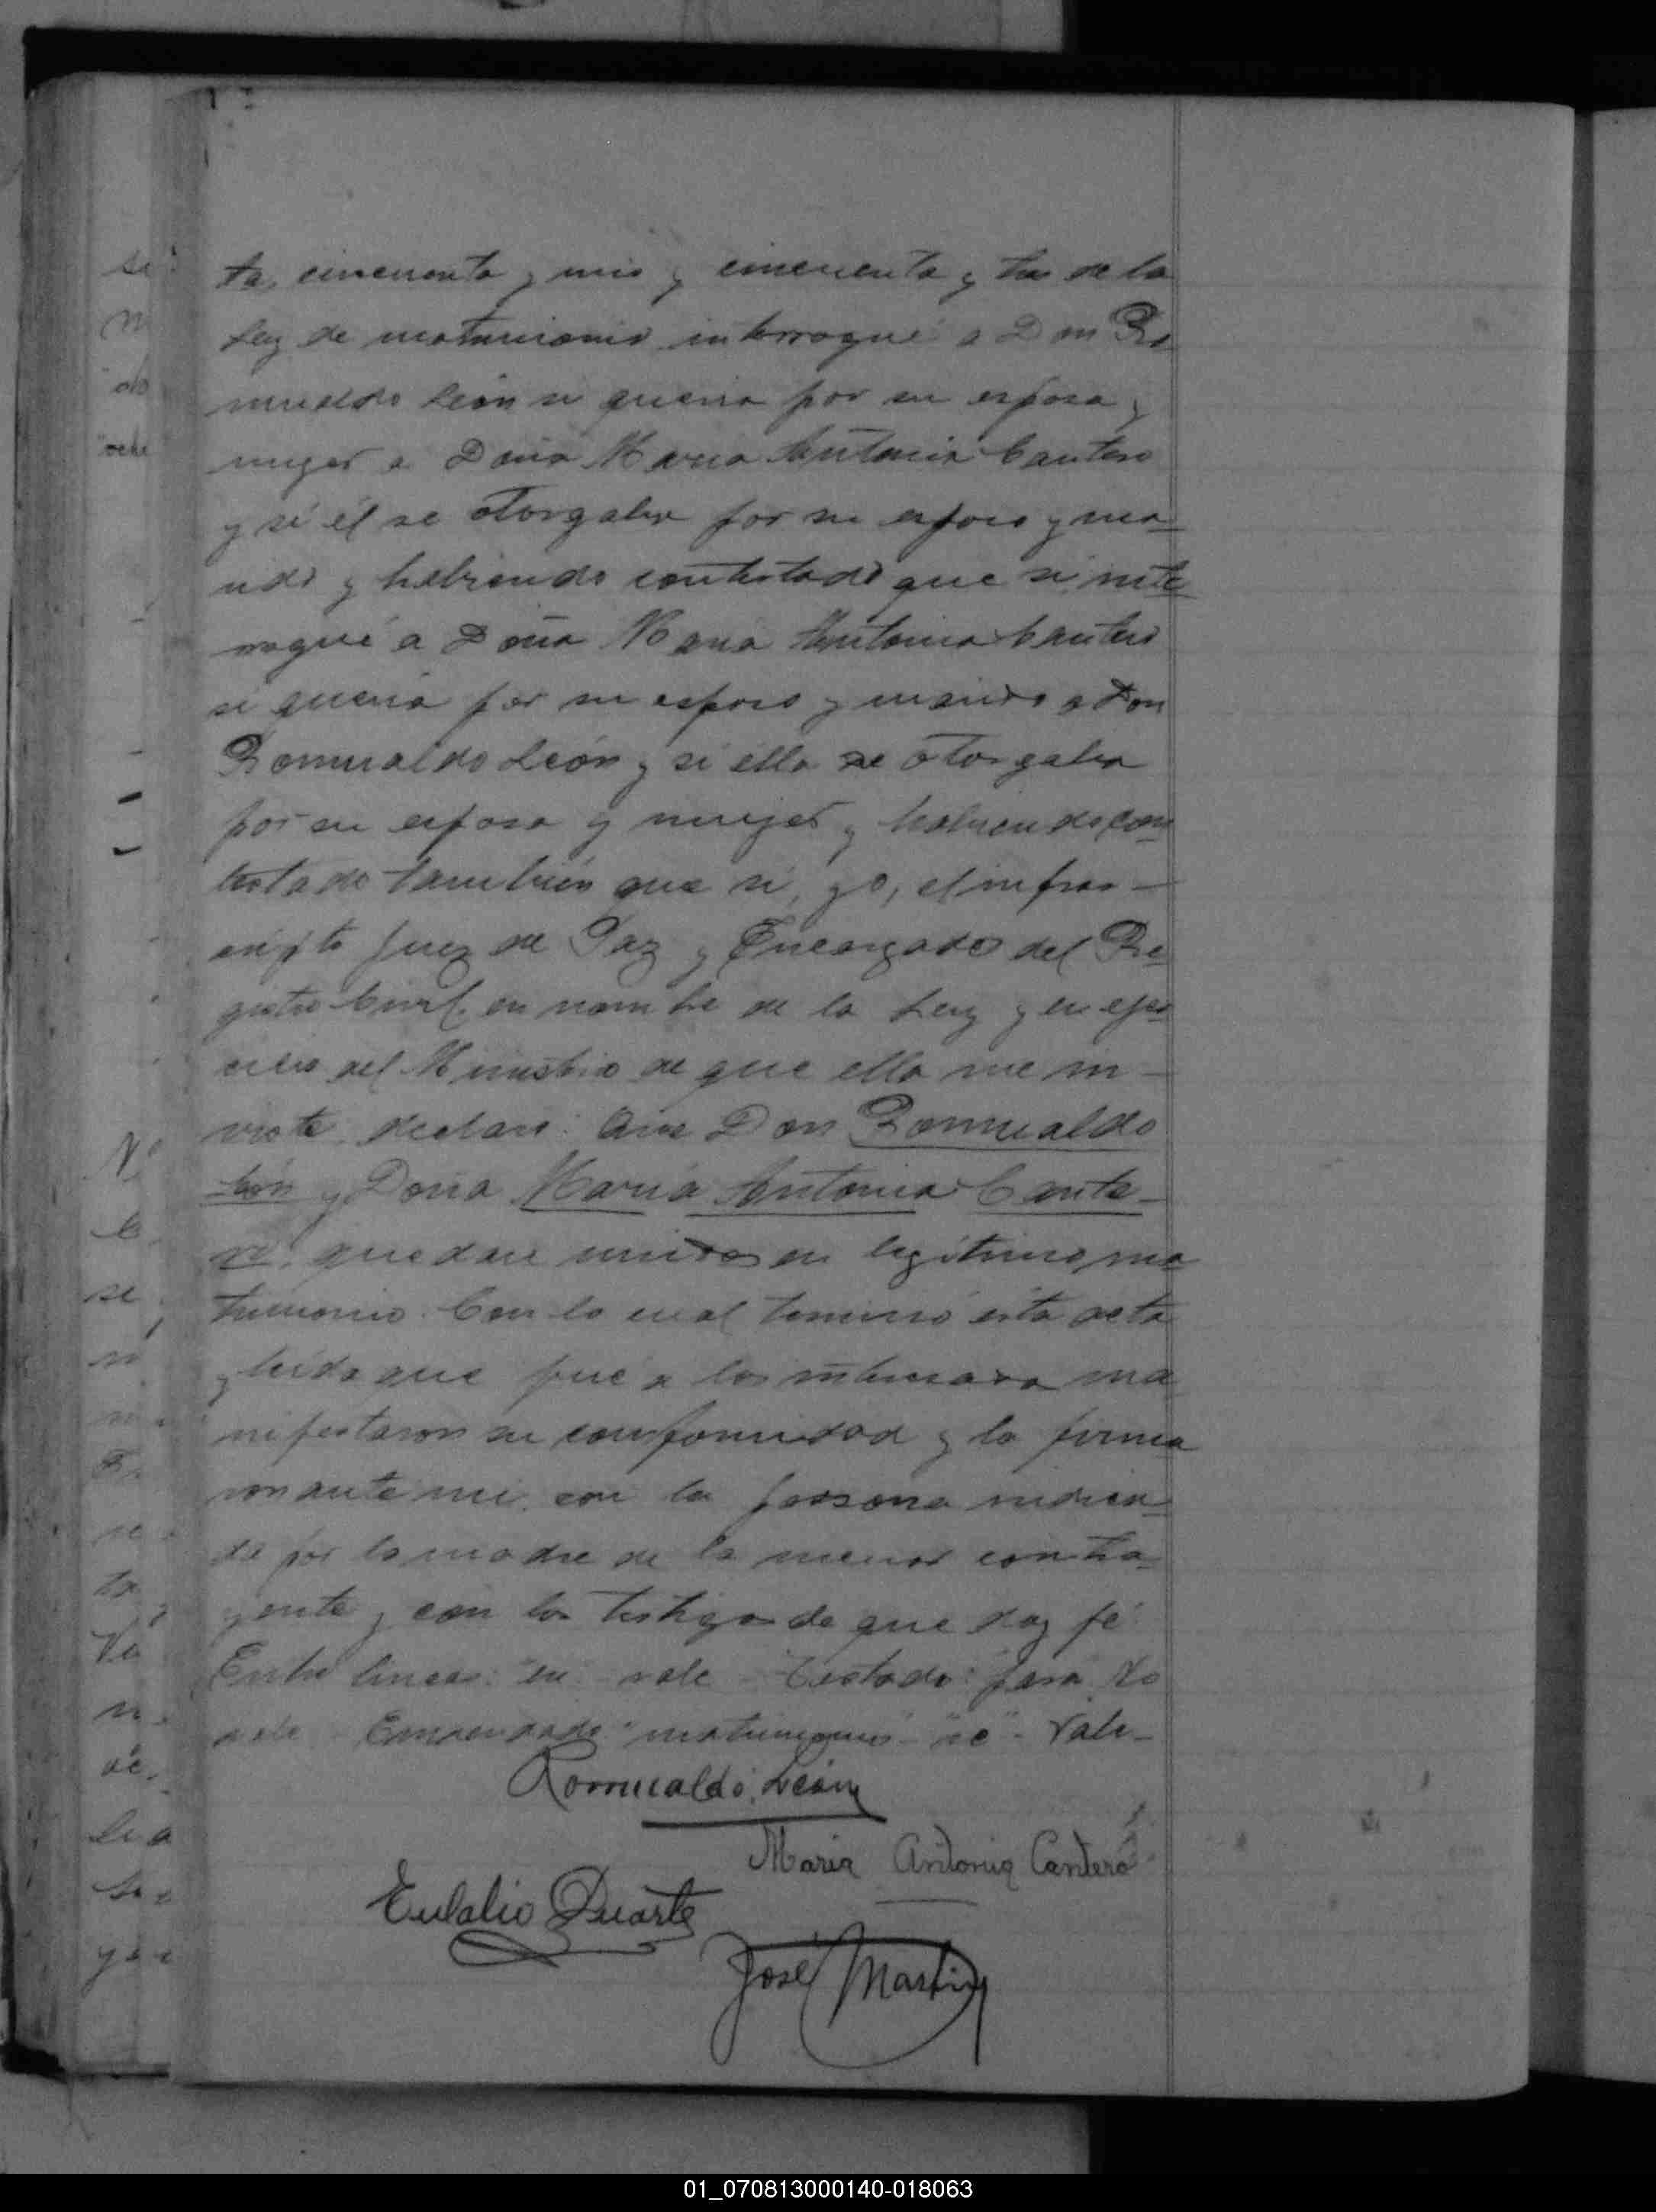 ta, cincuenta y uno y cincuenta y tres de la
Ley de matrimonio interrogué a Don Ro
mualdo León si quería por su esposa y
mujer a Doña María Antonia Cantero
y si él se otorgaba por su esposo y ma-
rido y habiendo contestado que si, inte-
rrogué a Doña María Antonia Cantero
si quería por su esposo y marido a Don
Romualdo León y si ella se otorgaba
por su esposa y mujer y habiendo con-
testado también que si, yo, el infras-
cripto Juez de Paz y Encargado del Re-
gistro Civil, en nombre de la Ley y en ejer
cicio del Ministerio de que ella me in-
viste, declaro: Que Don Romualdo
León y Doña María Antonia Cante-
ro, quedan unidos en legítimo ma
trimonio. Con lo cual terminó ésta acta
y leída que fué a los interesados ma
nifestaron su conformidad y la firma
ron ante mi, con la persona indica-
da por la madre de la menor contra-
yente y con los testigos de que doy fé.
Entre lineas: "en" vale - Testado: "para" No
vale Enmendado "matrimonio" - "se" - Vale -
Romualdo León
Maria Antonia Cantero
Eulalio Duarte
José Martin
si
m
do
oche
N
C
se
ta
de
ye
01_070813000140-018063